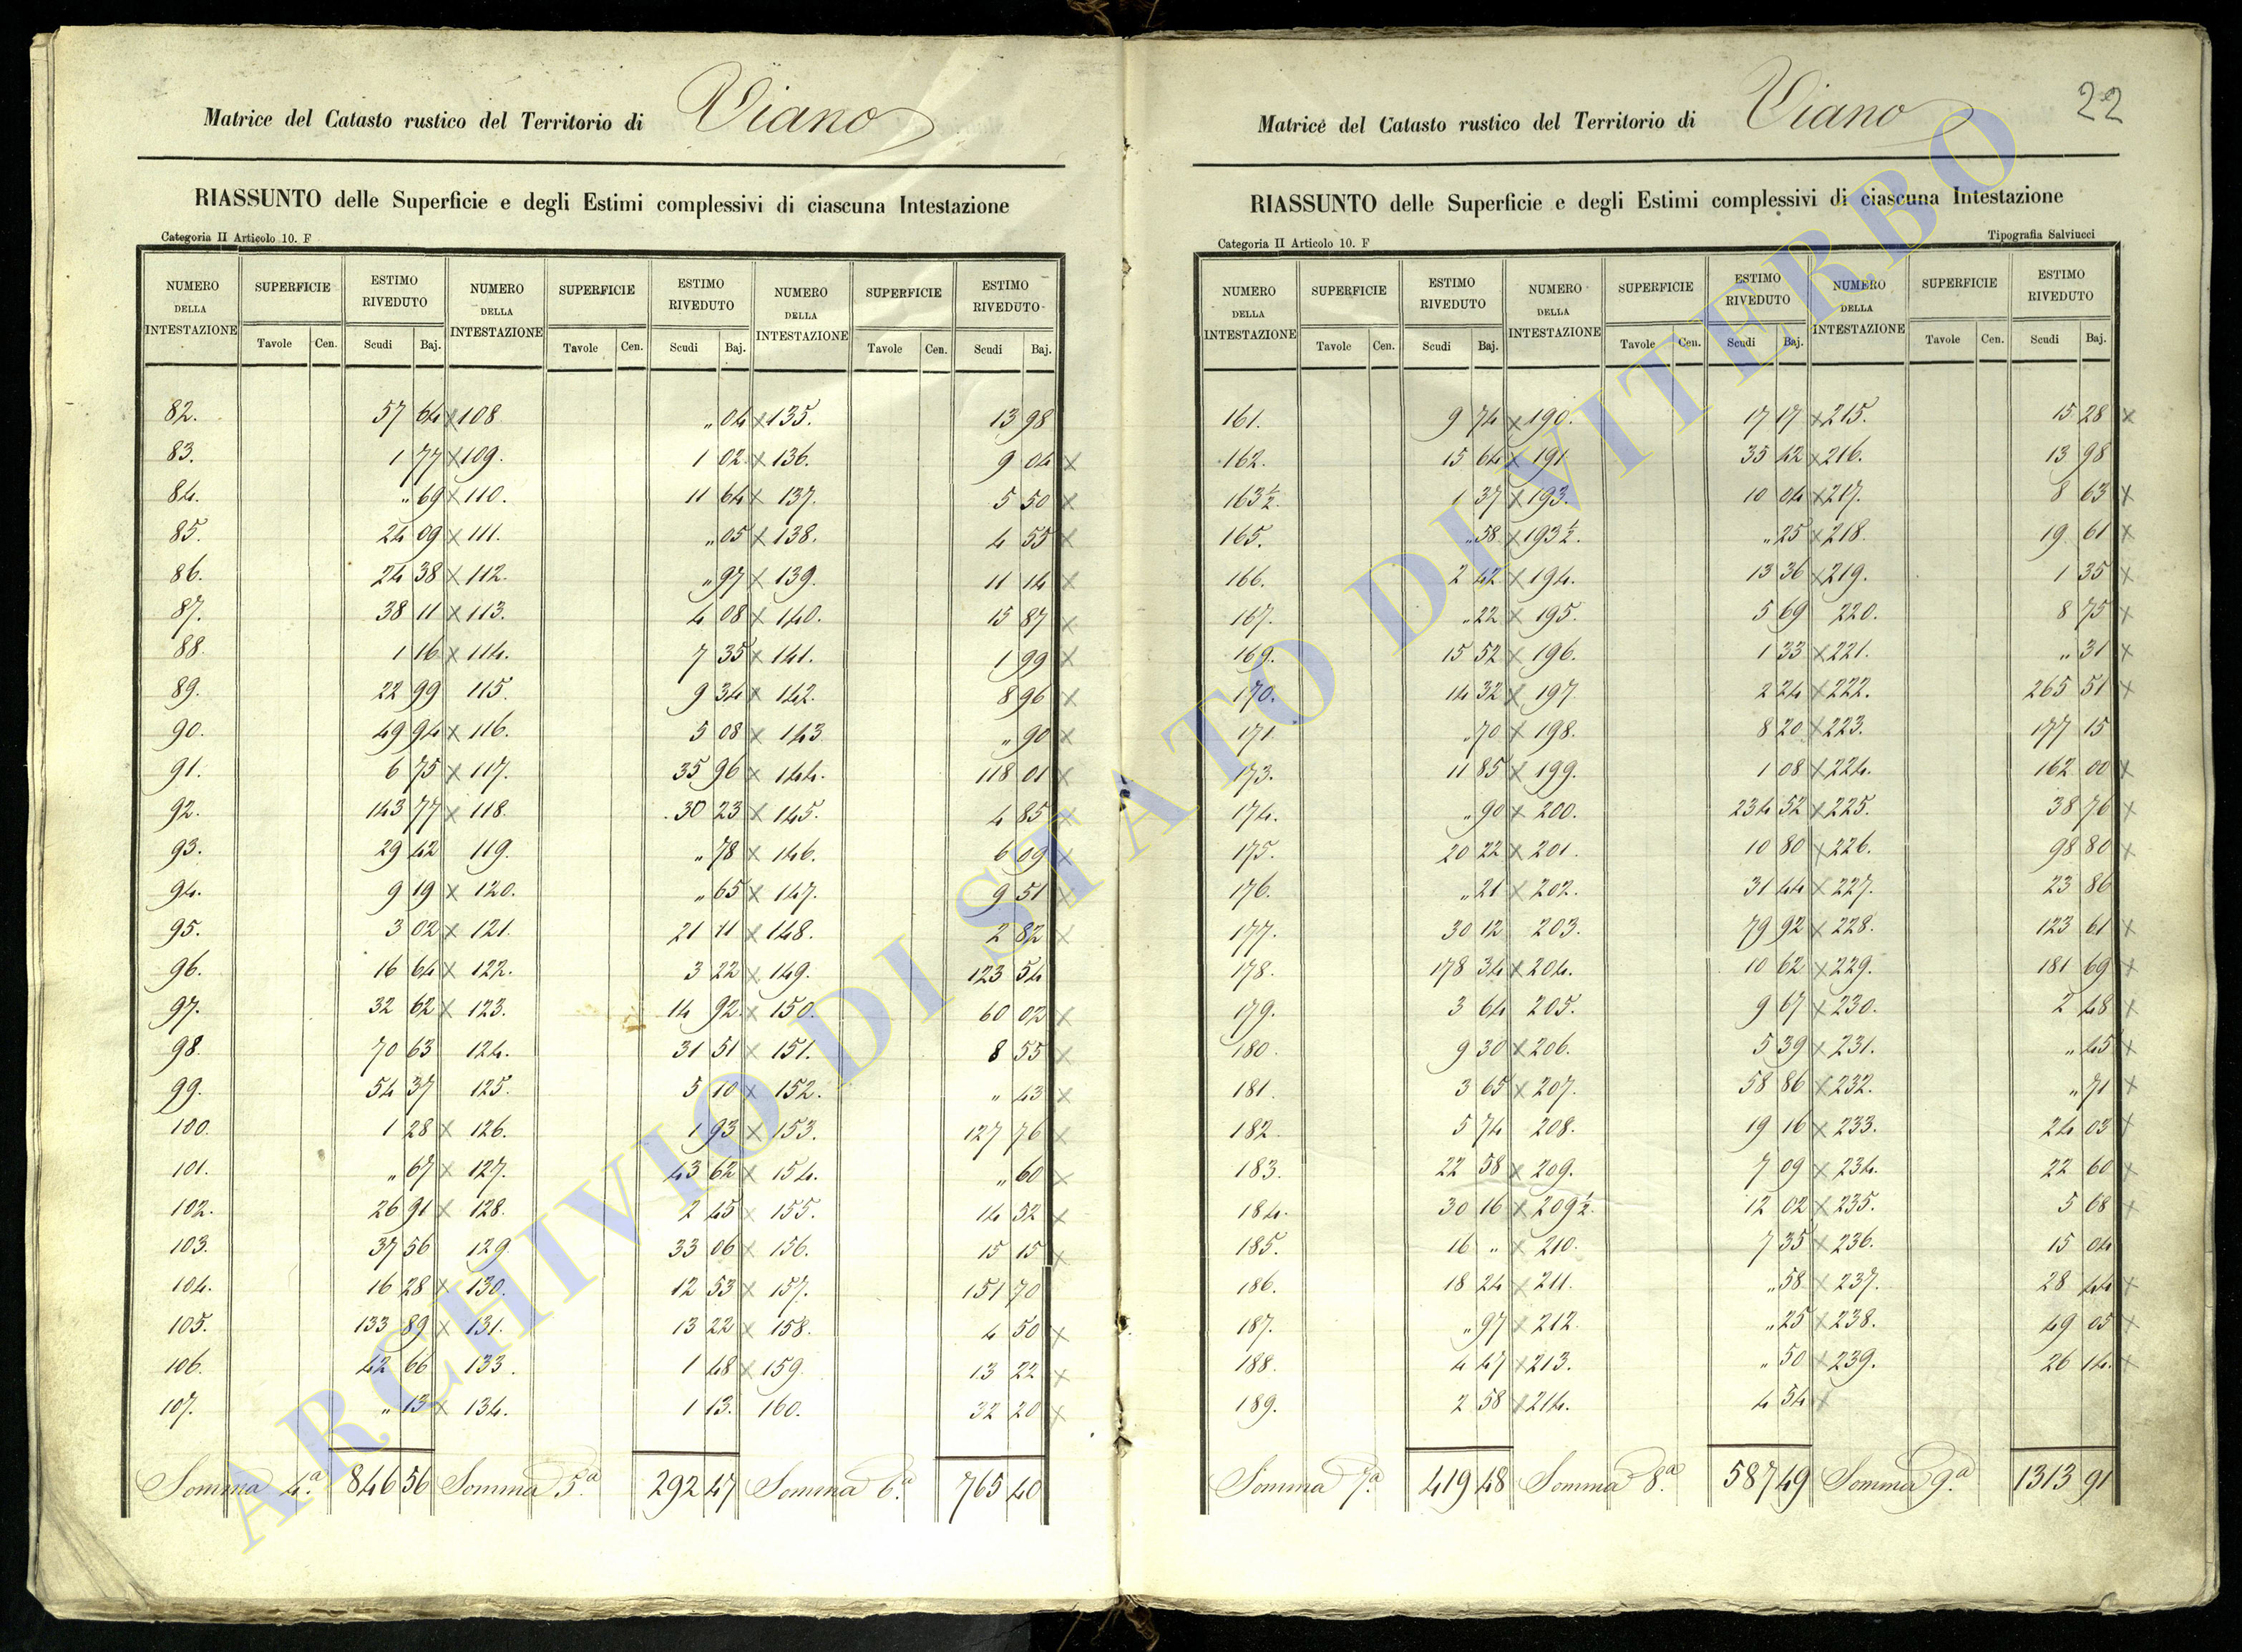 Matrice del Catasto rustico del Territorio di Viano
RIASSUNTO delle Superficie e degli Estimi complessivi di ciascuna Intestazione
Categoria II Articolo 10. F
NUMERO DELLA INTESTAZIONE SUPERFICIE ESTIMO RIVEDUTO NUMERO DELLA INTESTAZIONE SUPERFICIE ESTIMO RIVEDUTO NUMERO DELLA INTESTAZIONE SUPERFICIE ESTIMO RIVEDUTO
Tavole Cen. Scudi Baj. Tavole Cen. Scudi Baj. Tavole Cen. Scudi Baj.
82. 57 64 x 108 „ 04 x 135. 13 98
83. 1 77 x 109. 1 02 x 136. 9 04 x
84. „ 69 x 110. 11 64 x 137. 5 50 x
85. 24 09 x 111. „ 05 x 138. 4 55 x
86. 24 38 x 112. „ 97 x 139. 11 14 x
87. 38 11 x 113. 4 08 x 140. 15 87 x
88. 1 16 x 114. 7 35 x 141. 1 99 x
89. 22 99 115. 9 34 x 142. 8 96 x
90. 49 94 x 116. 5 08 x 143 „ 90 x
91. 6 75 x 117. 35 96 x 144. 118 01 x
92. 143 77 x 118. 30 23 x 145. 4 85 x
93. 29 42 119. „ 78 x 146. 6 09 x
94. 9 19 x 120. „ 65 x 147. 9 51 x
95. 3 02 x 121. 21 11 x 148. 2 82 x
96. 16 64 x 122. 3 22 x 149. 123 54
97. 32 62 x 123. 14 92 x 150. 60 02 x
98. 70 63 124. 31 51 x 151. 8 55 x
99. 54 37 125. 5 10 x 152. „ 43 x
100. 1 28 x 126. 1 93 x 153. 127 76 x
101. „ 67 x 127. 43 62 x 154. „ 60 x
102. 26 91 x 128. 2 45 x 155. 14 52 x
103. 37 56 129. 33 06 x 156. 15 15 x
104. 16 28 x 130. 12 53 x 157. 151 70
105. 133 89 x 131. 13 22 x 158. 4 50 x
106. 42 66 133. 1 48 x 159. 13 22 x
107. „ 13 x 134. 1 13. 160. 32 20 x
Somma 4.ª 846 56 Somma 5.ª 292 47 Somma 6.ª 765 40
22
Matrice del Catasto rustico del Territorio di Viano
RIASSUNTO delle Superficie e degli Estimi complessivi di ciascuna Intestazione
Categoria II Articolo 10. F Tipografia Salviucci
NUMERO DELLA INTESTAZIONE SUPERFICIE ESTIMO RIVEDUTO NUMERO DELLA INTESTAZIONE SUPERFICIE ESTIMO RIVEDUTO NUMERO DELLA INTESTAZIONE SUPERFICIE ESTIMO RIVEDUTO
Tavole Cen. Scudi Baj. Tavole Cen. Scudi Baj. Tavole Cen. Scudi Baj.
161. 9 74 x 190. 17 17 x 215. 15 28 x
162. 15 64 x 191 35 42 x 216. 13 98
163½. 1 37 x 193. 10 04 x 217. 8 63 x
165. „ 58 x 193½. „ 25 x 218. 19 61 x
166. 2 42 x 194. 13 36 x 219. 1 35 x
167. „ 22 x 195. 5 69 220. 8 75 x
169. 15 52 x 196. 1 33 x 221. „ 31 x
170. 14 32 x 197. 2 24 x 222. 265 51 x
171. „ 70 x 198. 8 20 x 223. 177 15
173. 11 85 x 199. 1 08 x 224. 162 00 x
174. „ 90 x 200. 234 52 x 225. 38 76 x
175. 20 22 x 201. 10 80 x 226. 98 80 x
176. „ 21 x 202. 31 44 x 227. 23 86
177. 30 12 203. 79 92 x 228. 123 61 x
178. 178 34 x 204. 10 62 x 229. 181 69 x
179. 3 64 205. 9 67 x 230. 2 48 x
180. 9 30 x 206. 5 39 x 231. „ 45 x
181. 3 65 x 207. 58 86 x 232. „ 71 x
182. 5 74 208. 19 16 x 233. 24 03 x
183. 22 58 x 209. 7 09 x 234. 22 60 x
184. 30 16 x 209½. 12 02 x 235. 5 68 x
185. 16 „ x 210. 7 35 x 236. 15 04
186. 18 24 x 211. „ 58 x 237. 28 44 x
187. „ 97 x 212. „ 25 x 238. 49 05 x
188. 4 47 x 213. „ 50 x 239. 26 14. x
189. 2 58 x 214. 4 54 x
Somma 7.ª 419 48 Somma 8.ª 587 49 Somma 9.ª 1313 91
ARCHIVIO DI STATO DI VITERBO